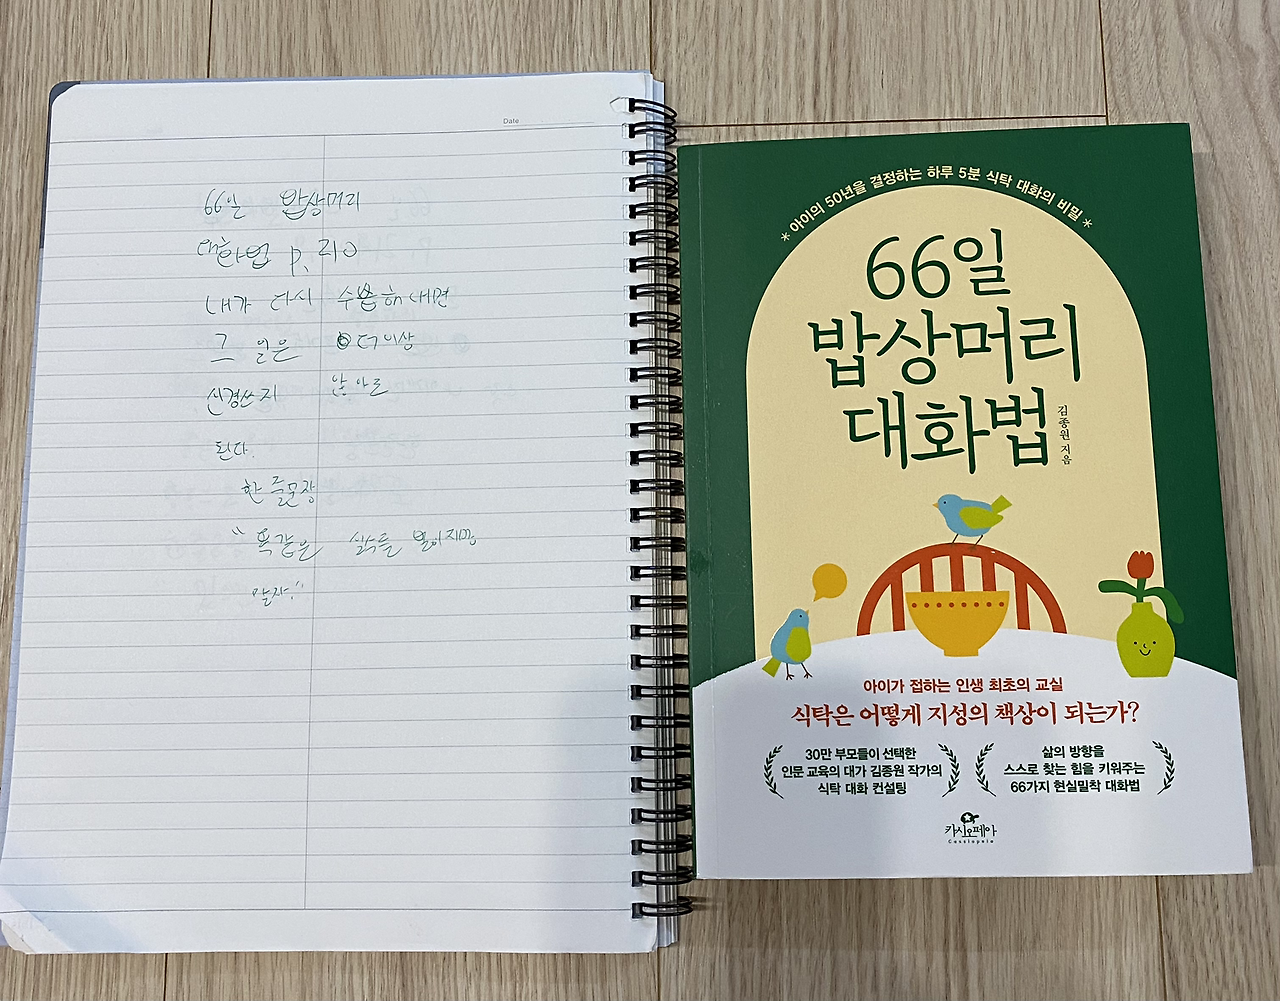 Date
66일 밥상머리
대화법 p. 210
내가 다시 수습해내면
그 일은 더이상
신경쓰지 않아도
된다.
한 줄문장
"똑같은 실수를 벌이지만
말자."
* 아이의 50년을 결정하는 하루 5분 식탁 대화의 비밀 *
66일
밥상머리
대화법
김종원 지음
아이가 접하는 인생 최초의 교실
식탁은 어떻게 지성의 책상이 되는가?
30만 부모들이 선택한
인문 교육의 대가 김종원 작가의
식탁 대화 컨설팅
삶의 방향을
스스로 찾는 힘을 키워주는
66가지 현실밀착 대화법
카시오페아
Cassiopeia